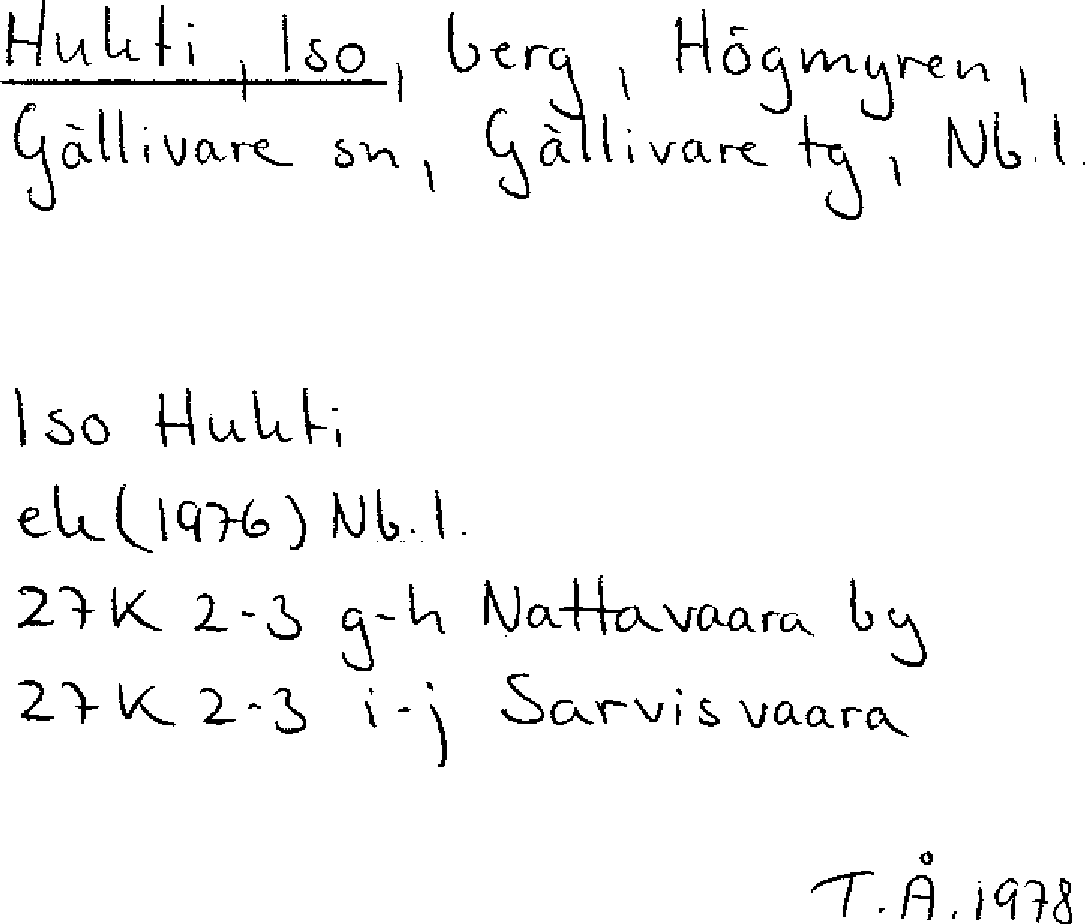 Huhti, Iso, berg, Högmyren,
Gällivare sn, Gällivare tg, Nb.l.
Iso Huhti
ek (1976) Nb.l.
27K 2-3 g-h Nattavaara by
27K 2-3 i-j Sarvisvaara
T.Å. 1978